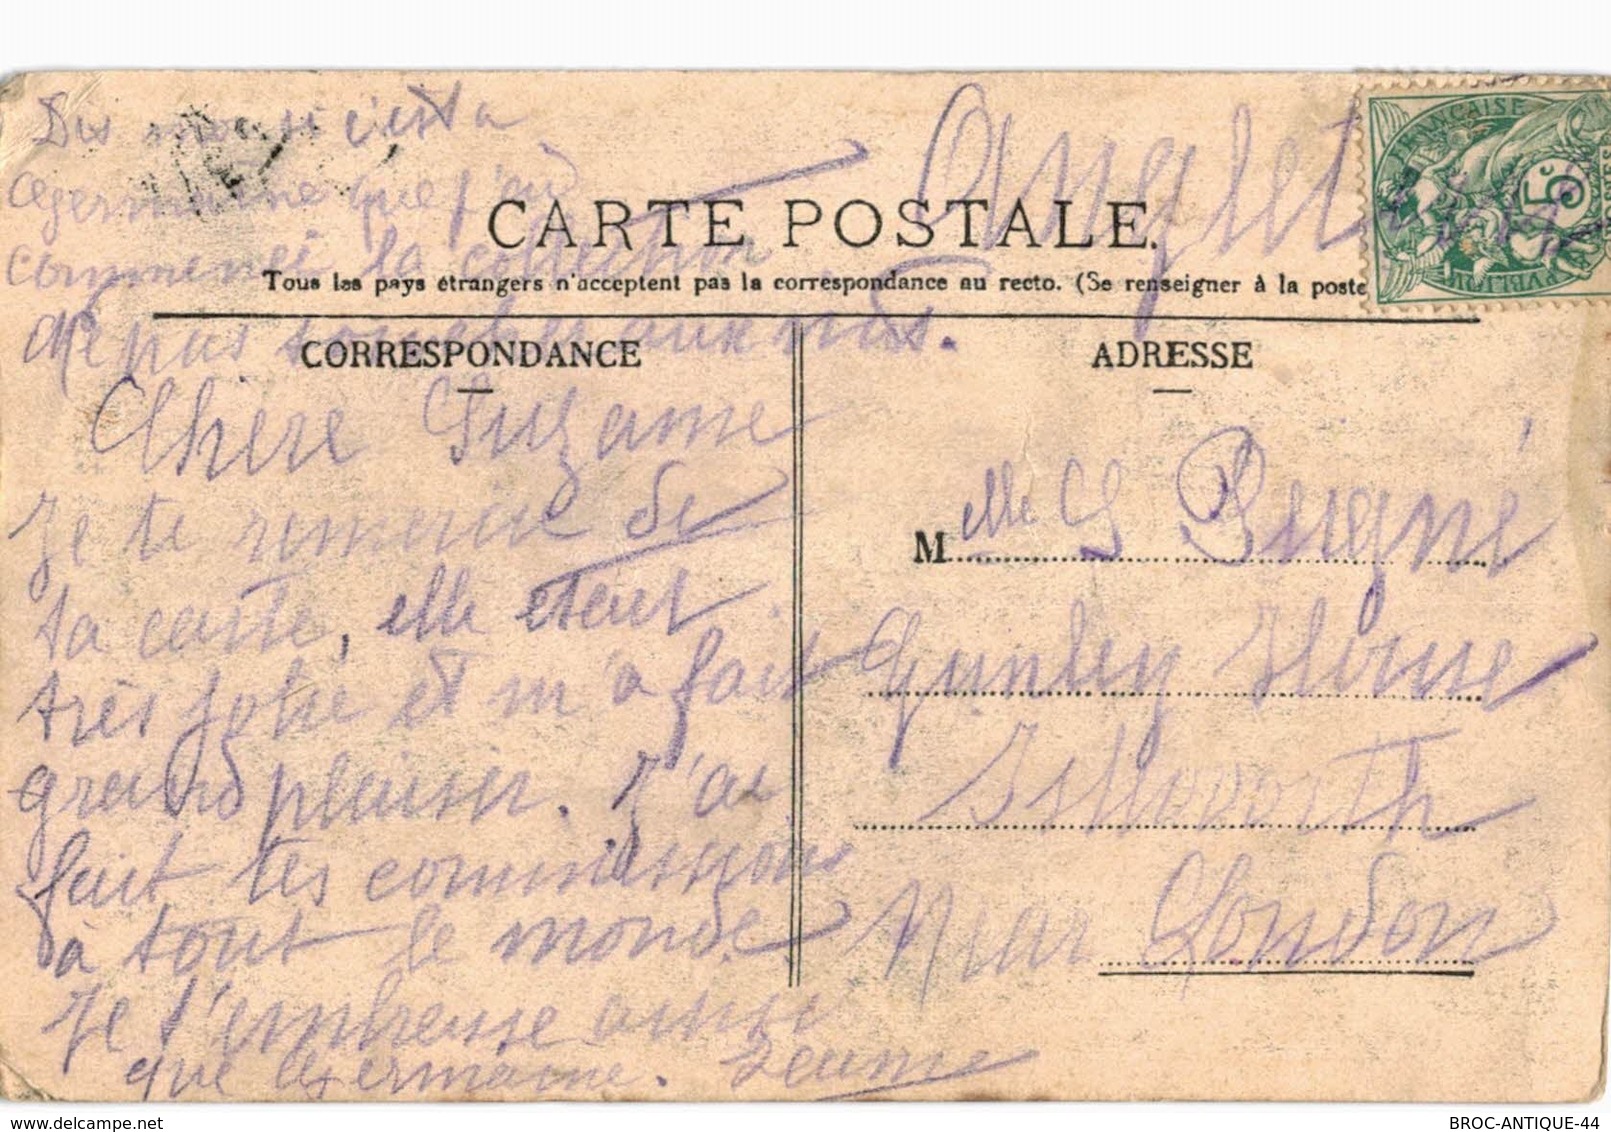 Dis moi si c'est a
Germaine que j'ai
commencé la collection
de pas toucher aux nids.
Angleterre
CARTE POSTALE.
Tous les pays étrangers n'acceptent pas la correspondance au recto. (Se renseigner à la poste
CORRESPONDANCE
Chère Suzanne
Je te remercie de
ta carte, elle etait
très jolie et m'a fait
grand plaisir. J'ai
fait tes commissions
à tout le monde.
Je t'embrasse ainsi
que Germaine. Jeanne
ADRESSE
Melle S Pugné
Gunley House
Isleworth
Near London
FRANÇAISE
5c
BROC-ANTIQUE-44